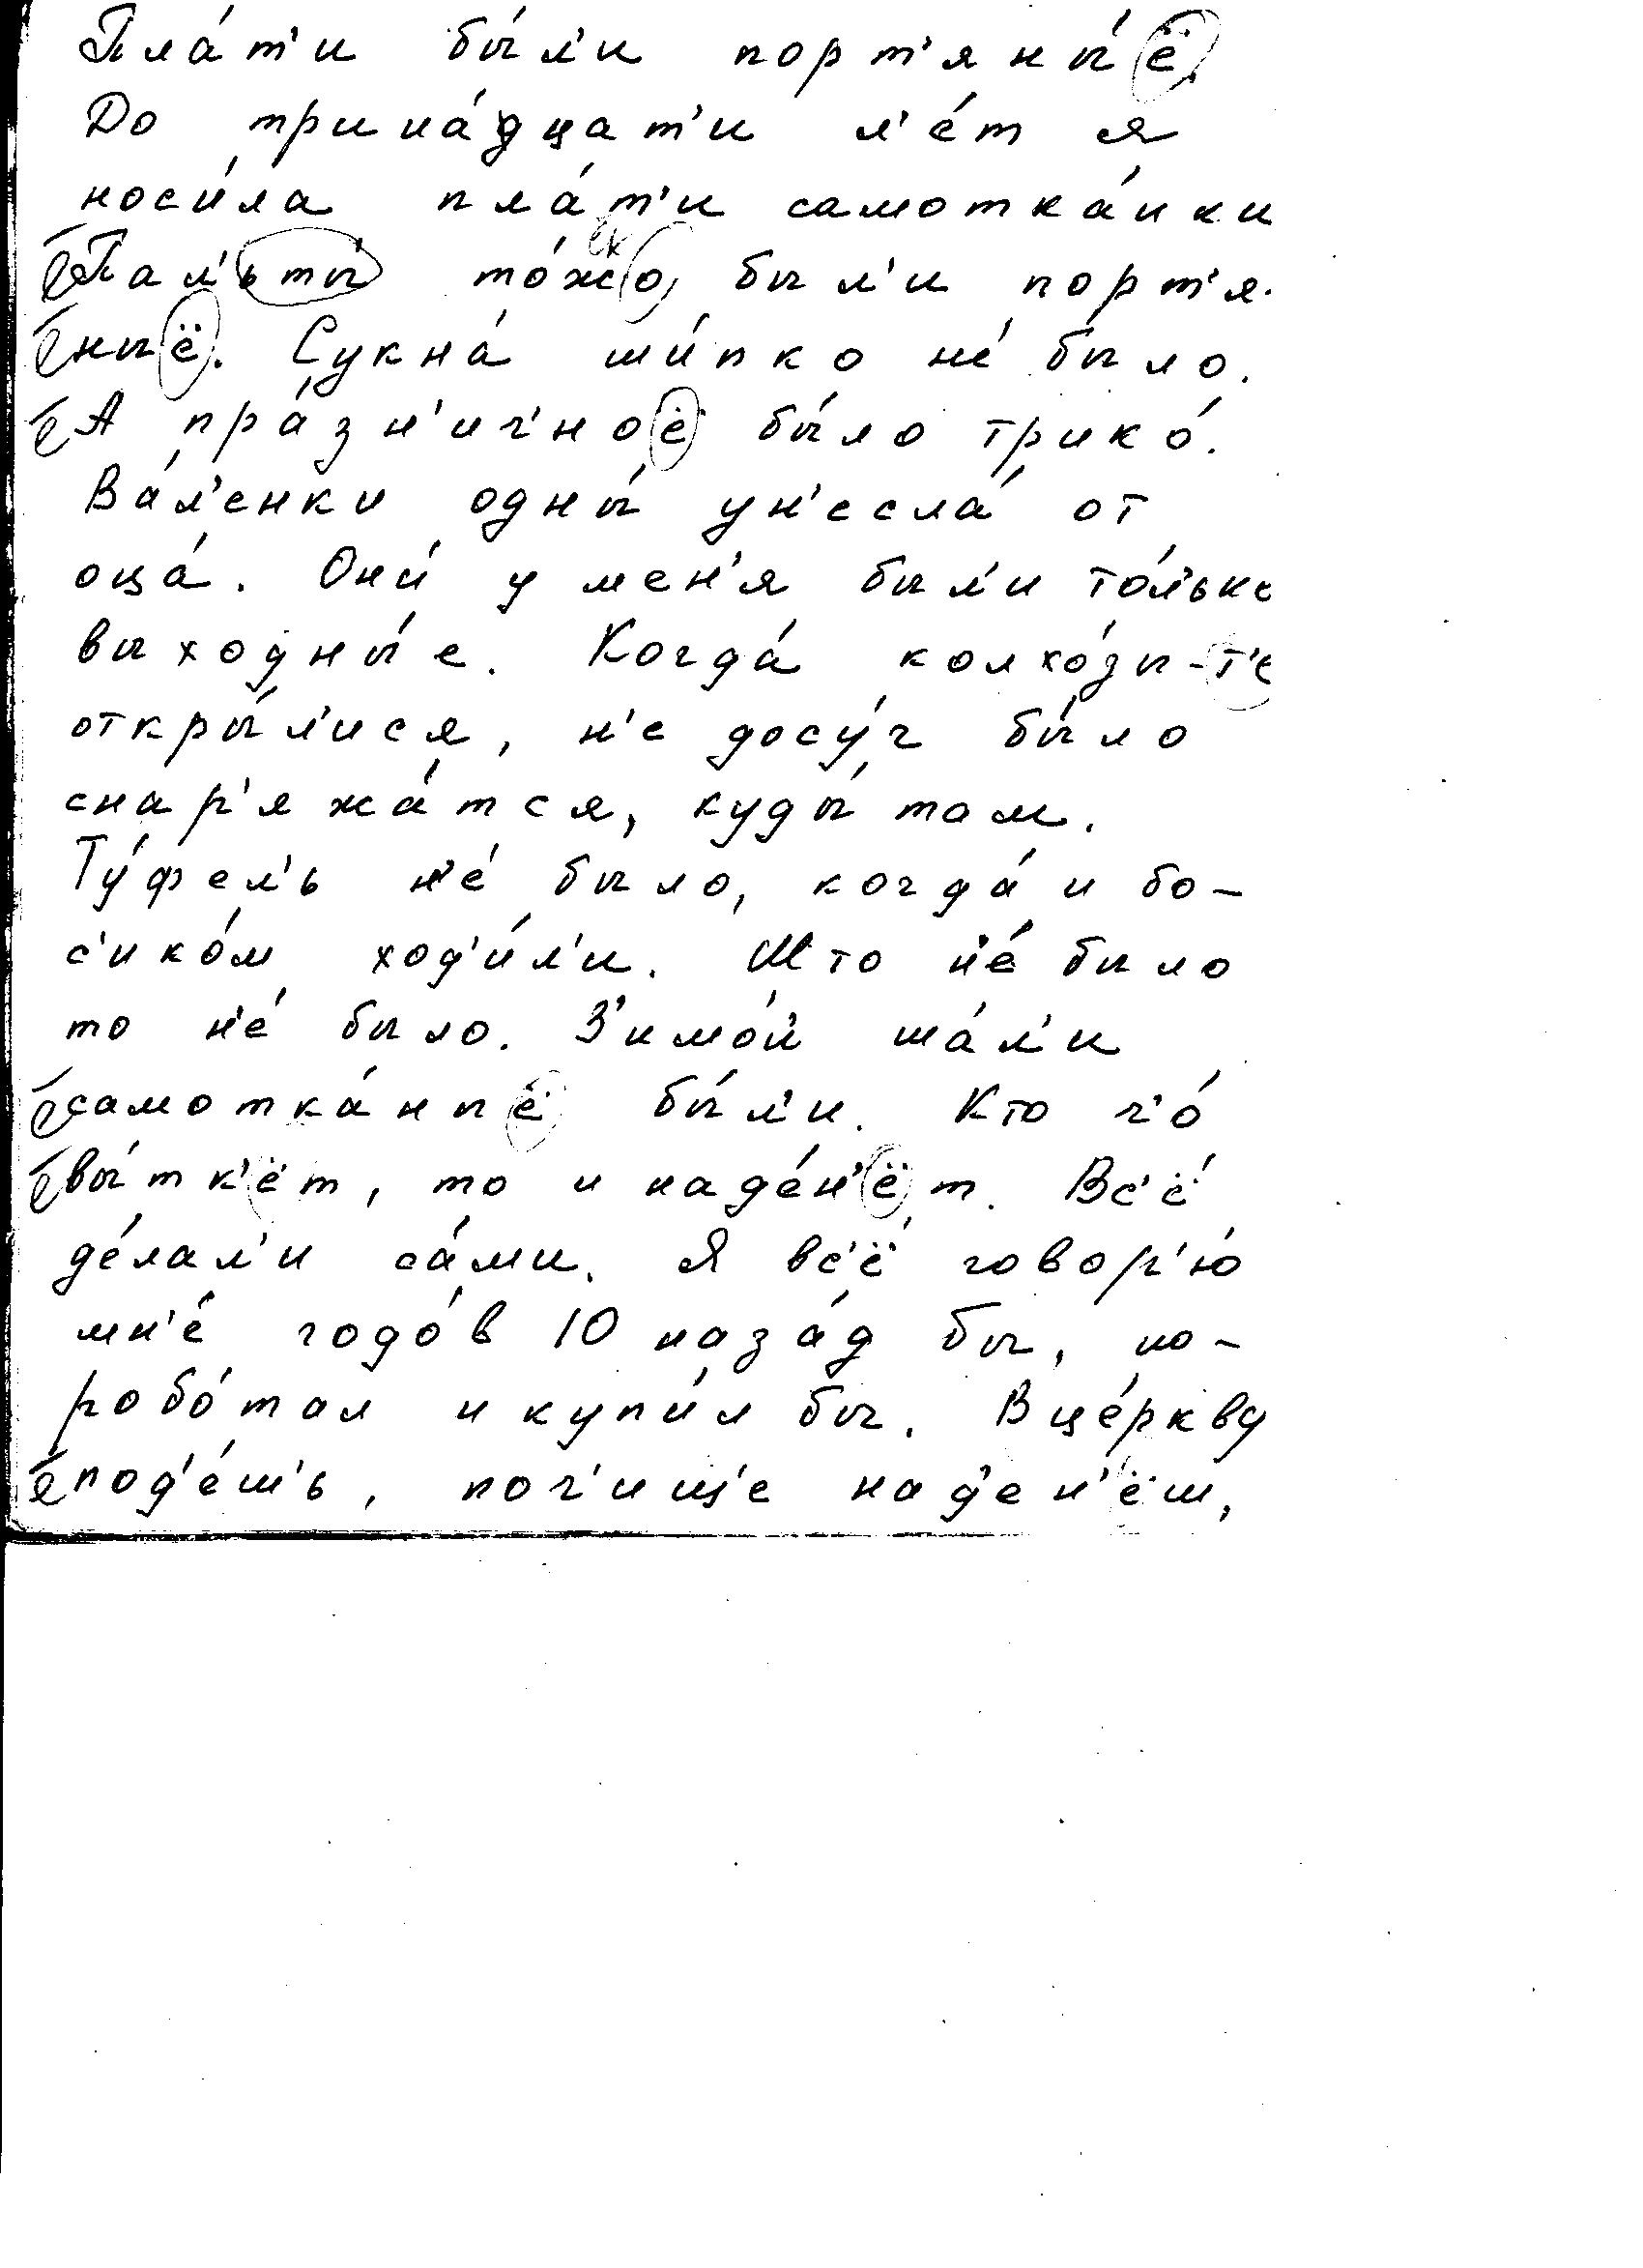 Пла́т'и бы́л'и порт'яны́ё.
До трина́дцат'и л'е́т я
носи́ла пла́т'и самотка́нки
Пал'ьты́ то́жо бы́л'и порт'я-
ныё. Сукна́ ши́пко не́ было.
А пра́зн'ич'ноё бы́ло трико́.
Ва́л'енки одны́ ун'есла́ от
оца́. Они́ у мен'я был'и то́л'ько
выходны́е. Когда́ колхо́зы-т'е
откры́л'ися, н'е досу́г бы́ло
снар'яжа́тся, куды́ там.
Ту́фел'ь н'е́ было, когда́ и бо-
с'ико́м ход'и́л'и. Што н'е́ было
то н'е́ было. З'имо́й ша́л'и
самотка́ныё бы́л'и. Кто ч'о́
вы́тк'ёт, то и наде́н'ёт. Вс'ё́
де́лал'и са́ми. Я вс'ё́ говор'ю́
мн'е́ годо́в 10 наза́д бы, по-
робо́тал и купи́л бы. В це́ркву
под'е́ш'ь, поч'ищ'е над'ен'ёш,